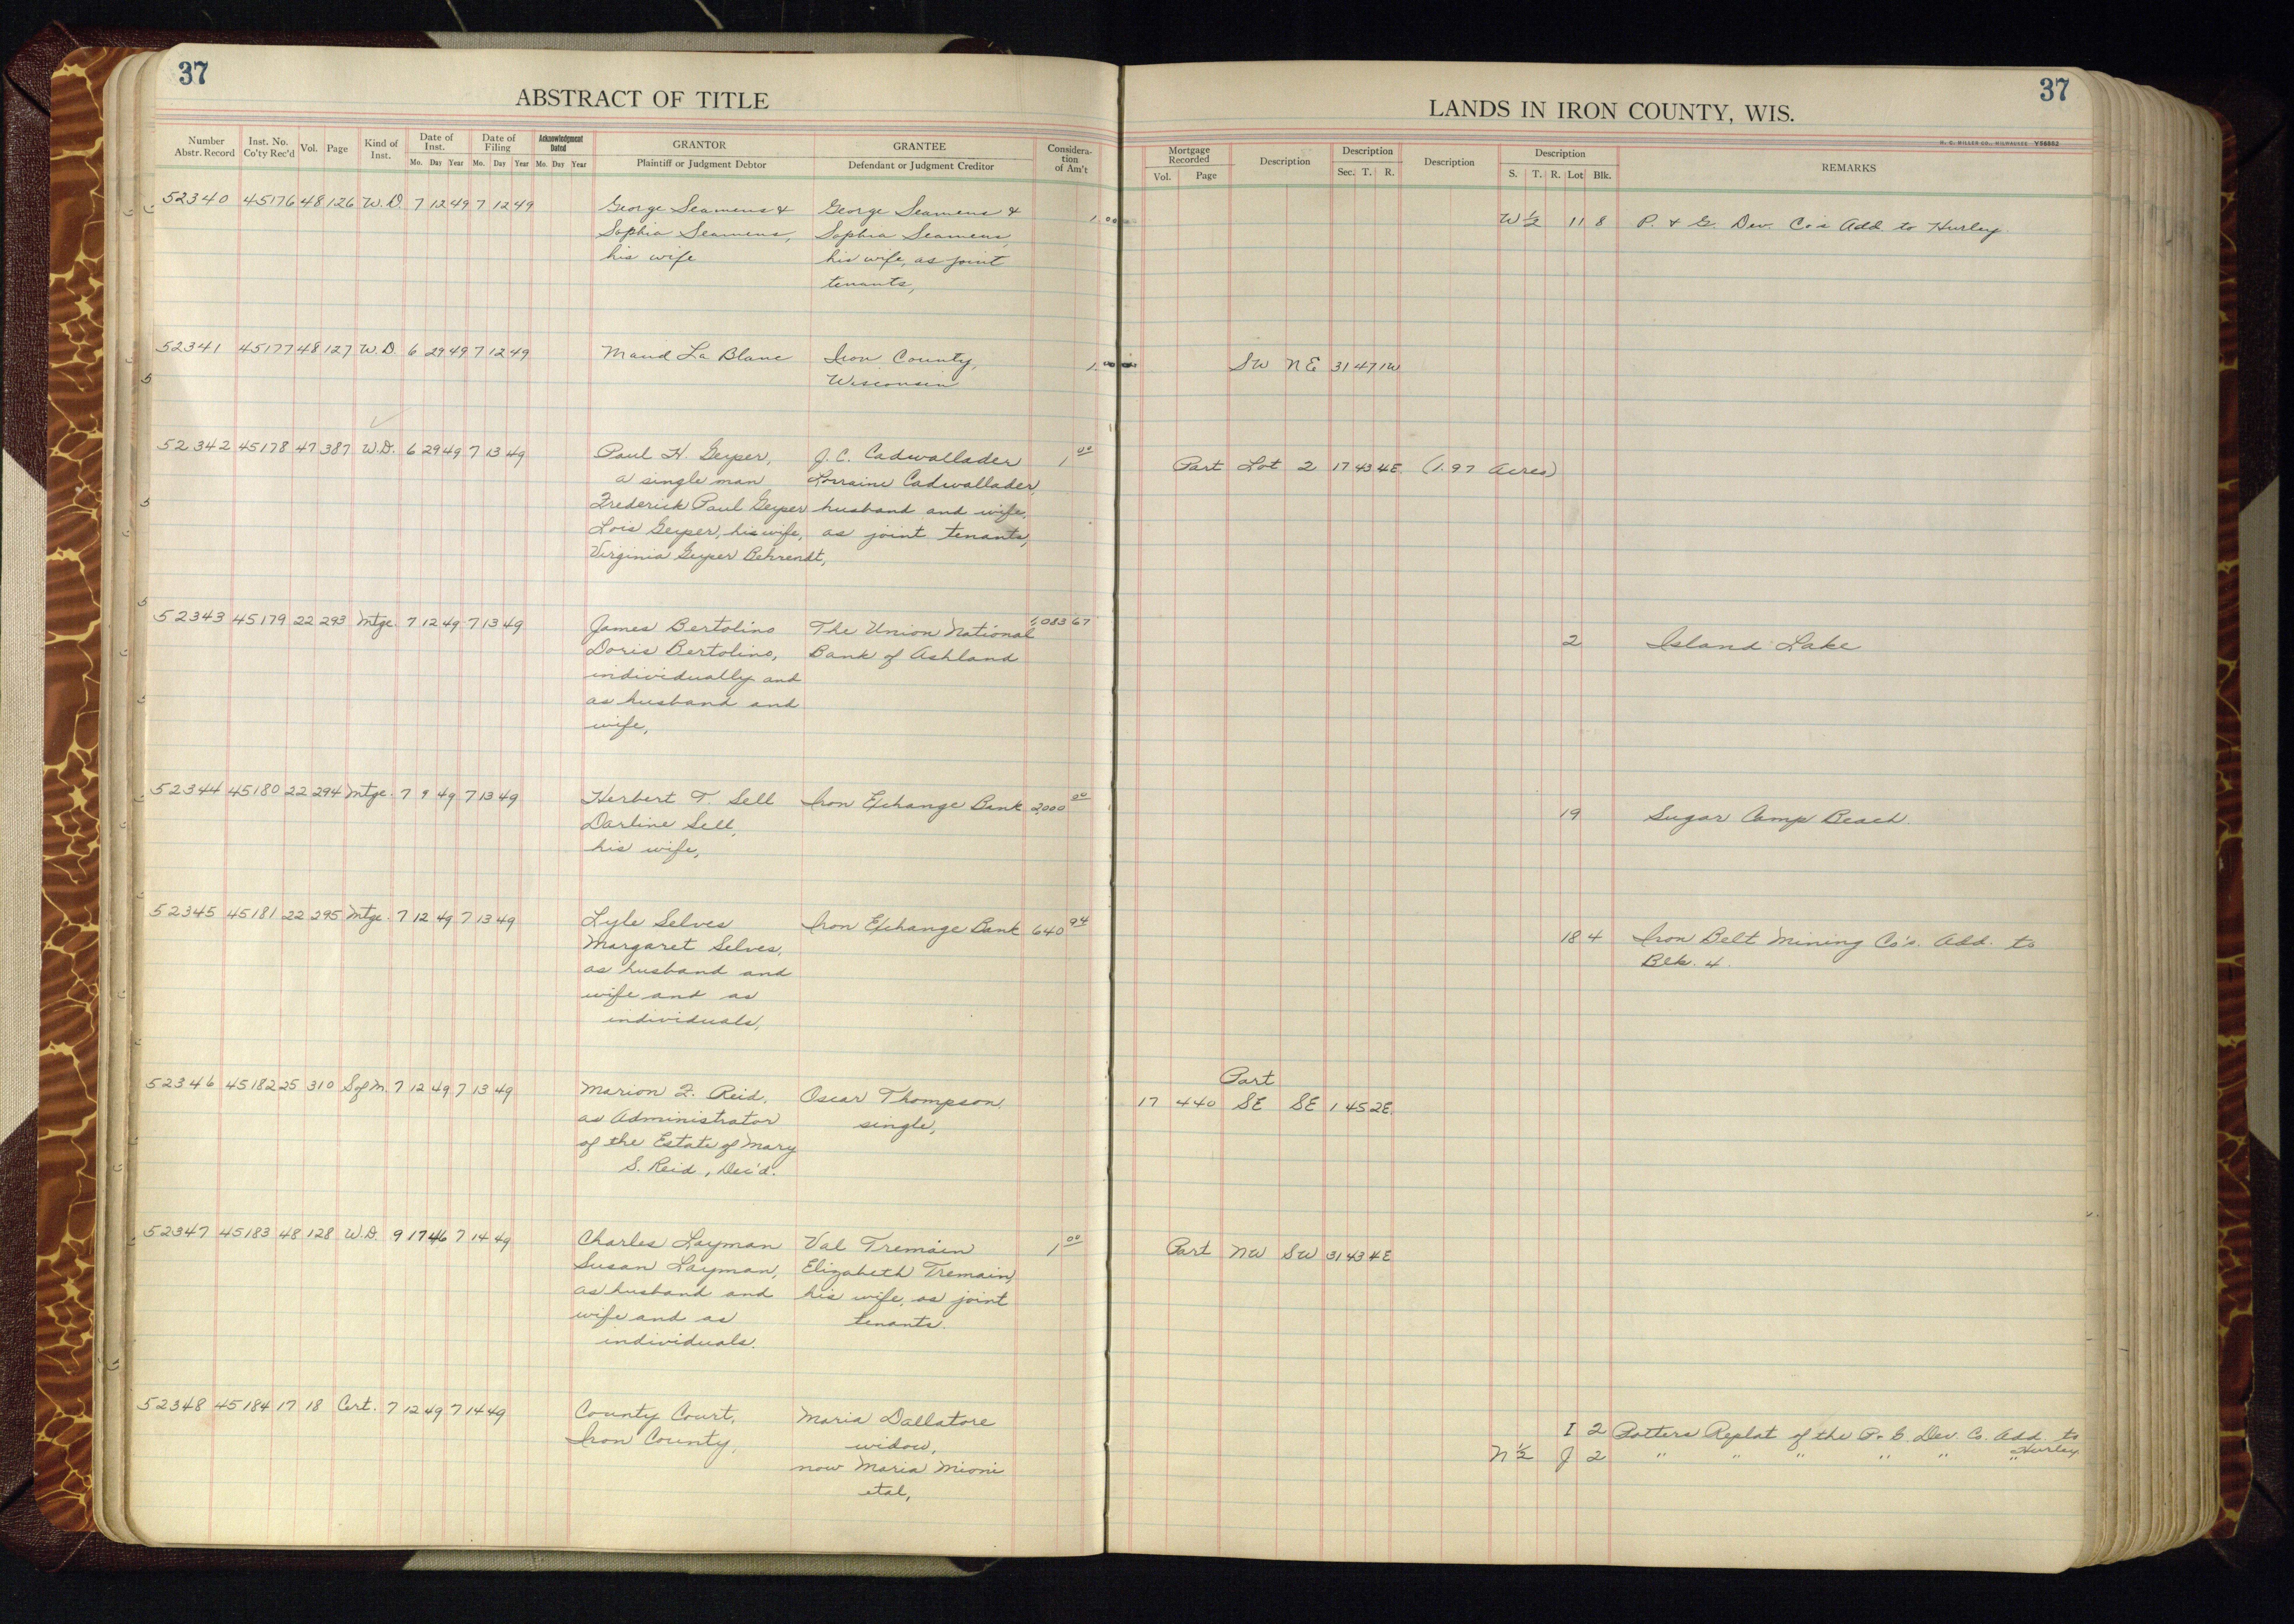 37
ABSTRACT OF TITLE
Number Abstr. Record Inst. No. Co'ty Rec'd Vol. Page Kind of Inst. Date of Inst. Mo. Day Year Date of Filing Mo. Day Year Acknowledgment Dated Mo. Day Year GRANTOR Plaintiff or Judgment Debtor GRANTEE Defendant or Judgment Creditor Considera- tion of Am't
52340 45176 48 126 W.D. 7 12 49 7 12 49 George Seamens & George Seamens & 1.00
Sophia Seamens, Sophia Seamens,
his wife his wife, as joint
tenants,
52341 45177 48 127 W.D. 6 29 49 7 12 49 Maud La Blanc Iron County, 1.00
Wisconsin
52342 45178 47 387 W.D. 6 29 49 7 13 49 Paul H. Geyser, J.C. Cadwallader 1 00
a single man Lorraine Cadwallader,
Frederick Paul Geyser husband and wife,
Lois Geyser, his wife, as joint tenants,
Virginia Geyser Behrendt,
52343 45179 22 293 Mtge. 7 12 49 7 13 49 James Bertolino The Union National 1,083 67
Doris Bertolino, Bank of Ashland
individually and
as husband and
wife,
52344 45180 22 294 Mtge. 7 9 49 7 13 49 Herbert T. Sell Iron Exchange Bank 2,000 00
Darline Sell,
his wife,
52345 45181 22 295 Mtge. 7 12 49 7 13 49 Lyle Selves Iron Exchange Bank 640 94
Margaret Selves,
as husband and
wife and as
individuals,
52346 45182 25 310 S of M. 7 12 49 7 13 49 Marion F. Reid, Oscar Thompson,
as Administrator single,
of the Estate of Mary
S. Reid, Dec'd.
52347 45183 48 128 W.D. 9 17 46 7 14 49 Charles Layman Val Tremain 1 00
Susan Layman, Elizabeth Tremain,
as husband and his wife, as joint
wife and as tenants.
individuals.
52348 45184 17 18 Cert. 7 12 49 7 14 49 County Court, Maria Dallatore
Iron County, widow,
now Maria Mioni
etal,
37
LANDS IN IRON COUNTY, WIS.
H. C. MILLER CO., MILWAUKEE Y56862
Mortgage Recorded Vol. Page Description Description Sec. T. R. Description Description S. T. R. Lot Blk. REMARKS
W ½ 11 8 P. & G. Dev. Co's Add. to Hurley.
SW NE 31 47 1W
Part Lot 2 17 43 4E. (1.97 Acres)
2 Island Lake
19 Sugar Camp Beach.
18 4 Iron Belt Mining Co's. Add. to
Blk. 4.
Part
17 440 SE SE 1 45 2E.
Part NW SW 31 43 4E
I 2 Potters Replat of the P. & G. Dev. Co. Add. to
Hurley
N ½ J 2 " " " " " "